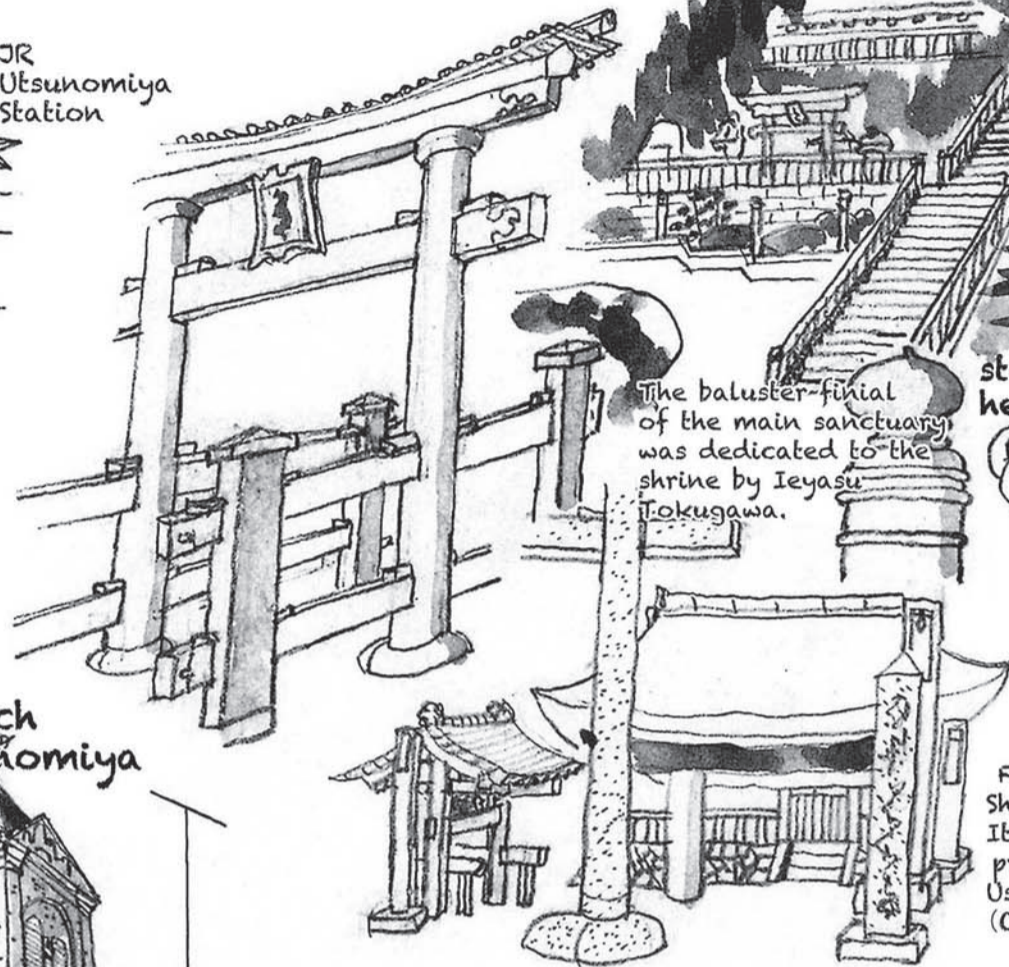 JR
Utsunomiya
Station
The baluster-finial
of the main sanctuary
was dedicated to the
shrine by Ieyasu
Tokugawa.